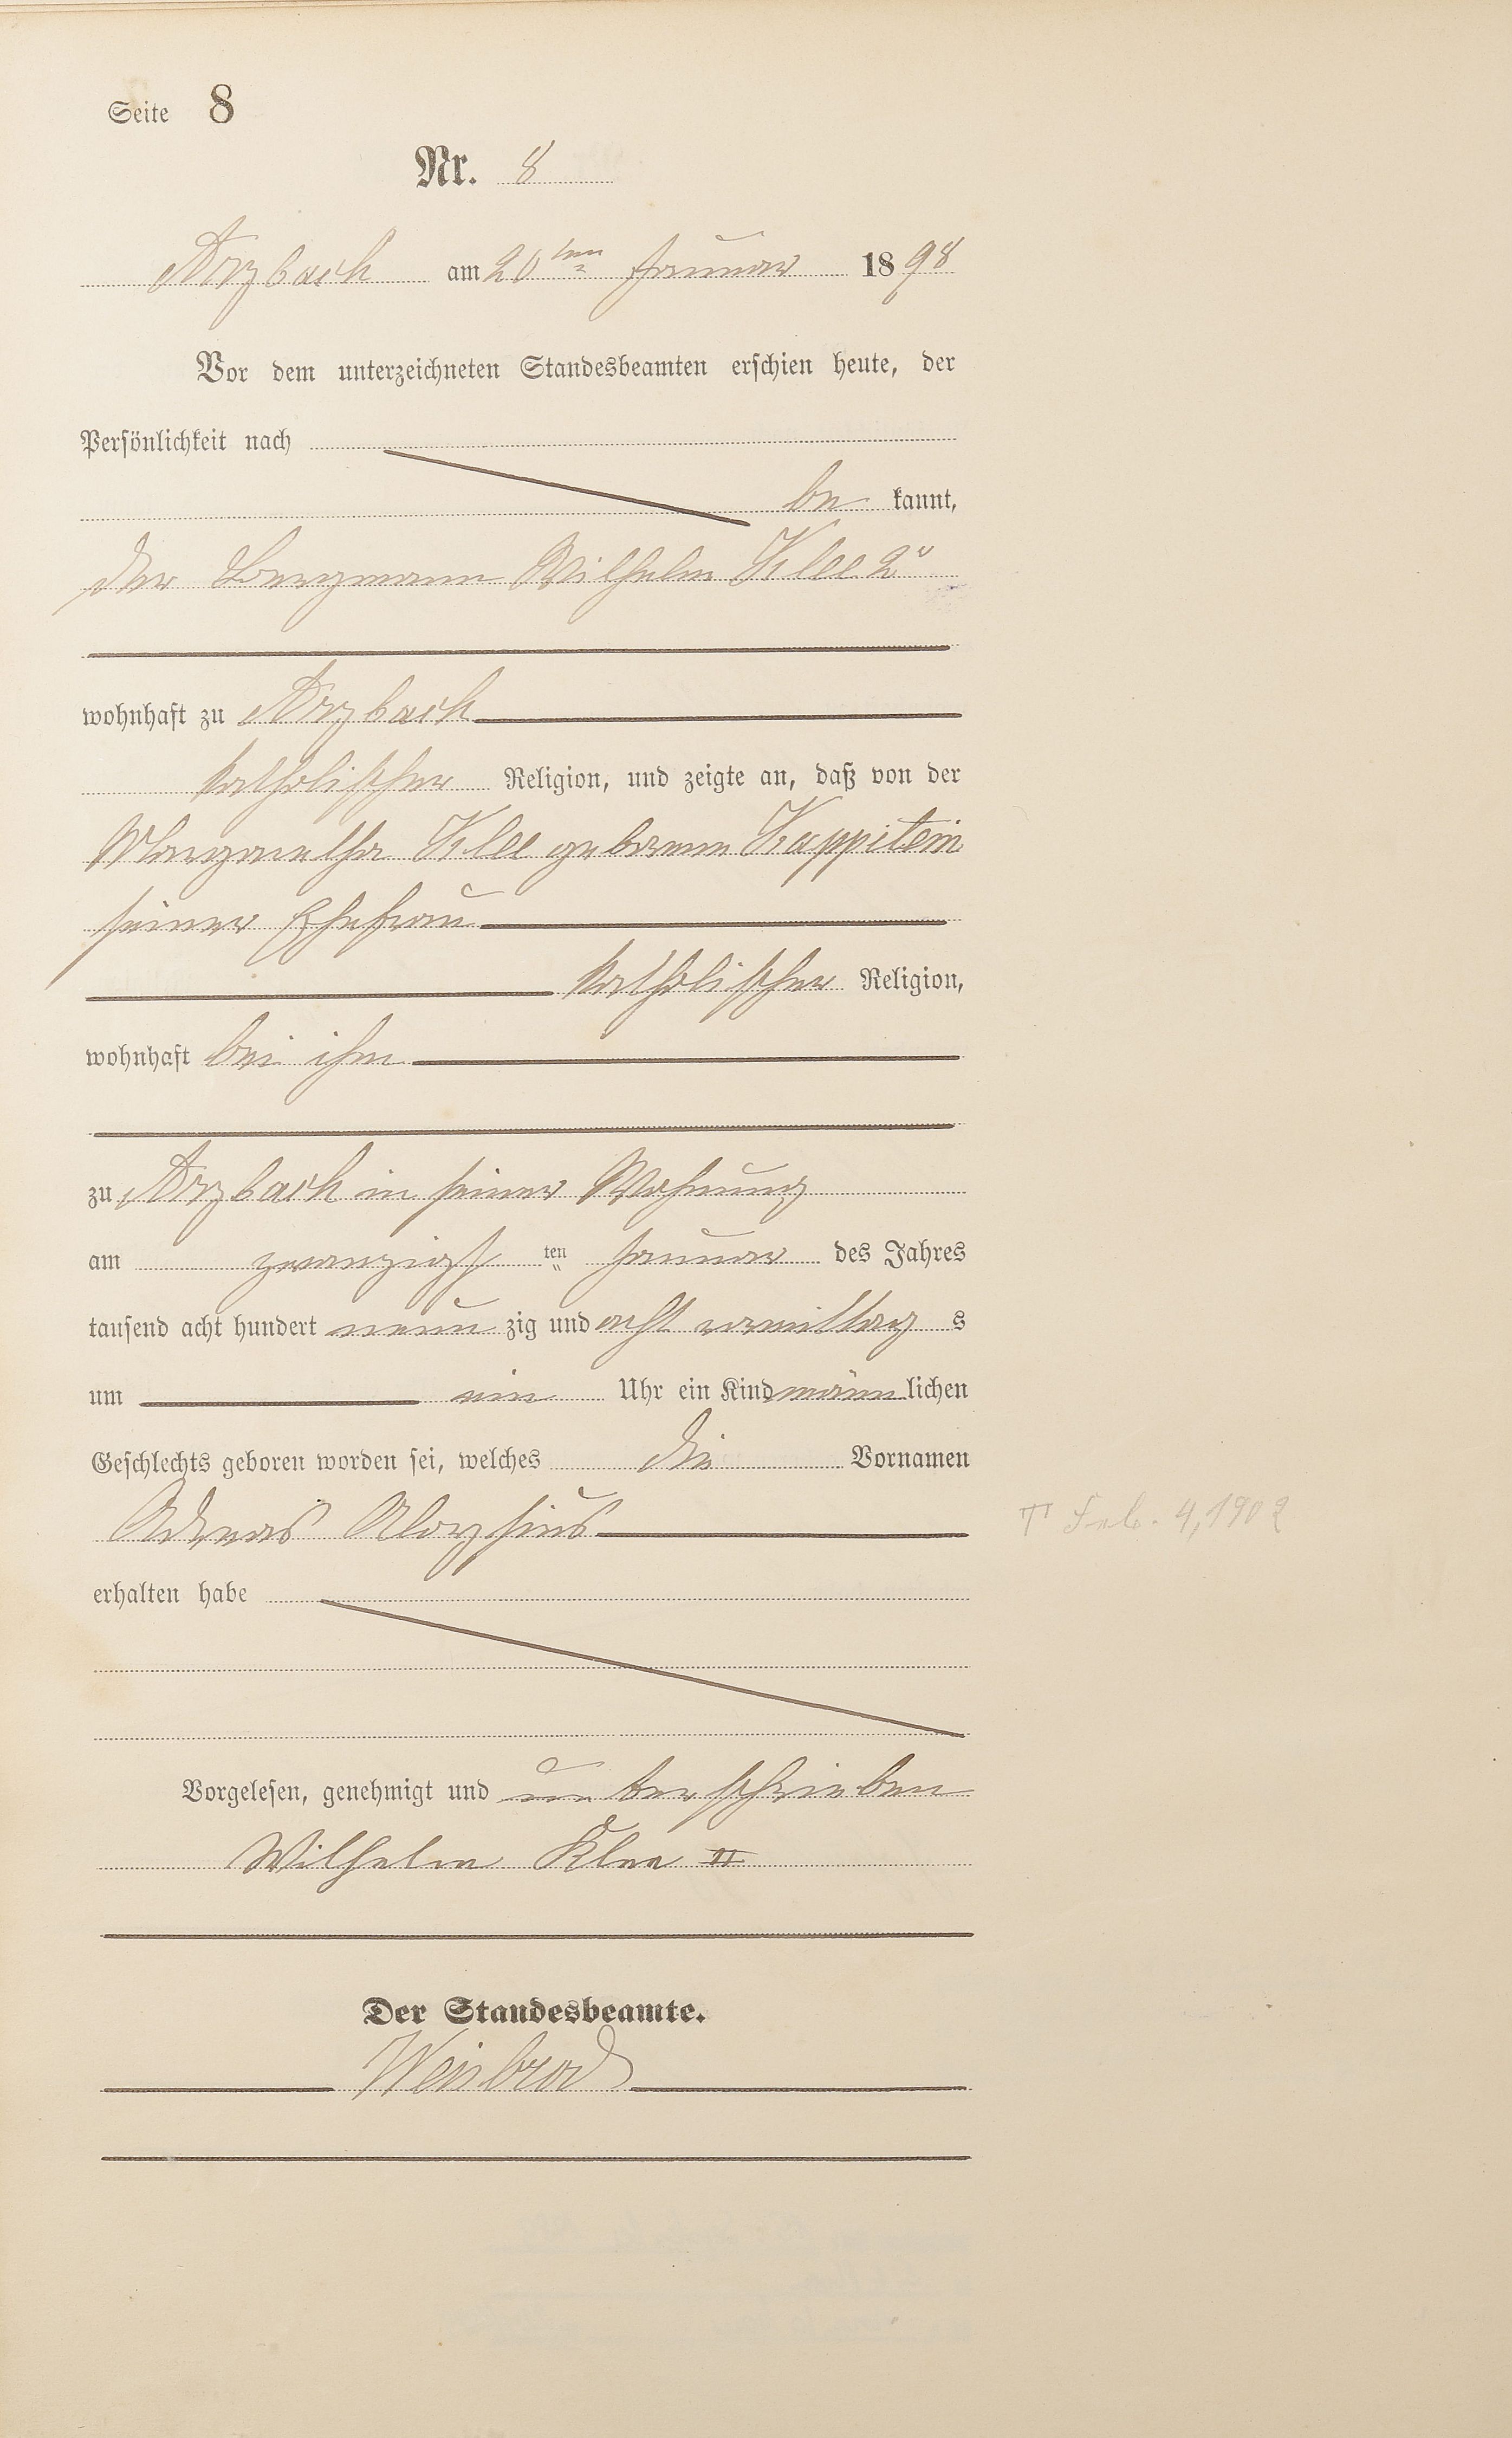 Seite 8
Nr. 8
Arzbach am 20ten Januar 1898
Vor dem unterzeichneten Standesbeamten erschien heute, der
Persönlichkeit nach
be kannt,
der Bergmann Wilhelm Klee 2r
wohnhaft zu Arzbach
katholischer Religion, und zeigte an, daß von der
Margaretha Klee geborene Kappitein
seiner Ehefrau
katholischer Religion,
wohnhaft bei ihm
zu Arzbach in seiner Wohnung
am zwanzigsten Januar des Jahres
tausend acht hundert neun zig und acht vormittag s
um ein Uhr ein Kind männ lichen
Geschlechts geboren worden sei, welches die Vornamen
Aloysius
erhalten habe
Vorgelesen, genehmigt und unterschrieben
Wilhelm Klee II
Der Standesbeamte.
Weisbrod
† Feb. 4, 1902